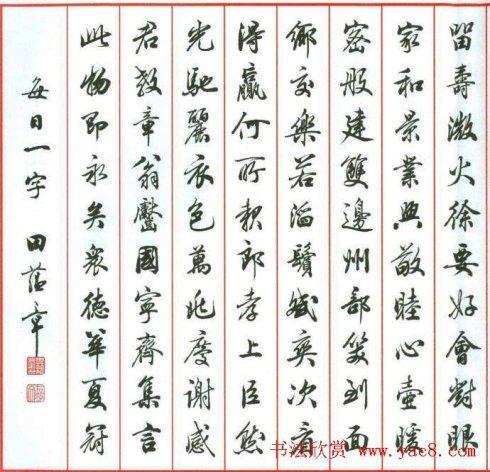 留壽激火徐要好會對眼
家和景業興敬睦心壺暖
密般建雙邊州部笑到面
鄉交樂若滔鬢斌奕次看
得赢何所報郎孝上臣然
光馳麗衣色萬兆慶謝感
君教章翁鑿國寧齊集言
此物即永矣衆德華夏冠
每日一字 田蕴章
书法欣赏 www.yac8.com